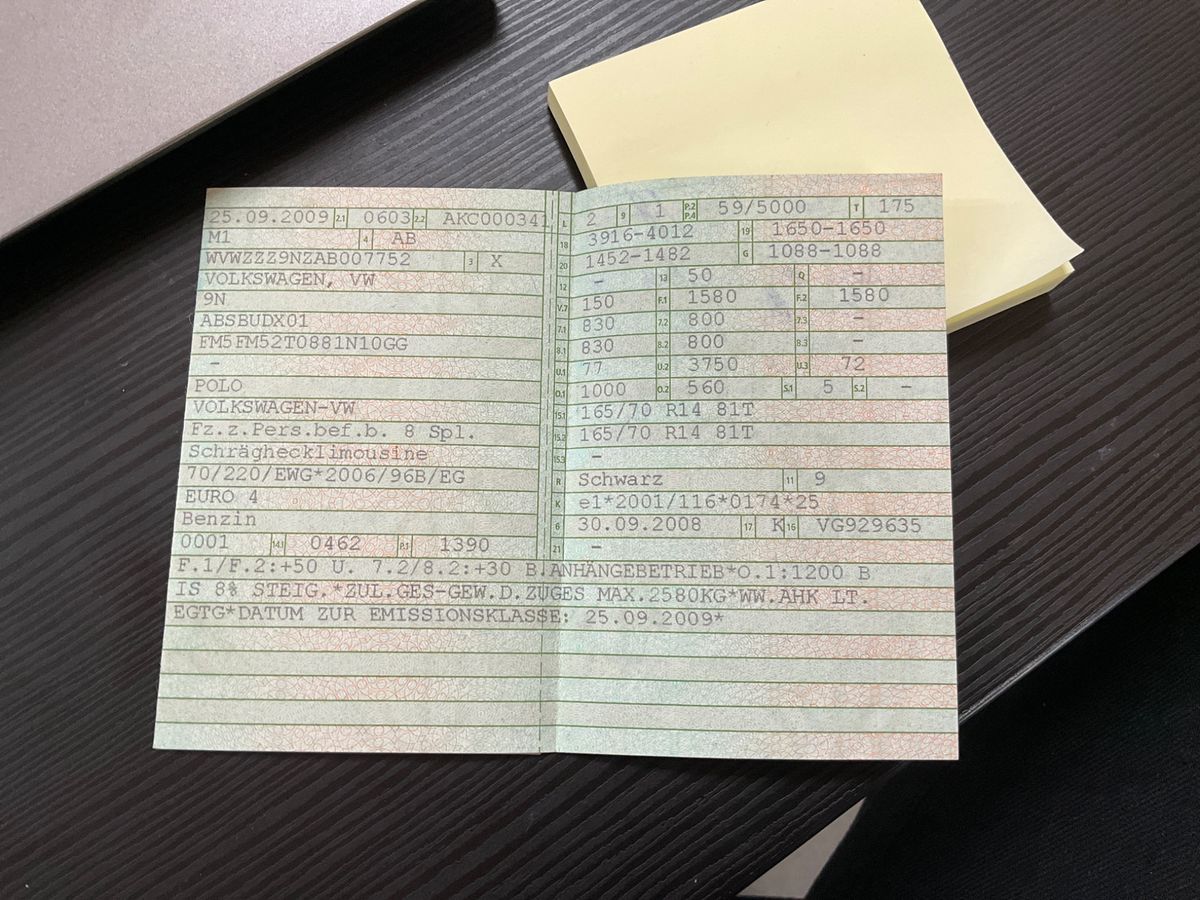 25.09.2009 2.1 0603 2.2 AKC000341
M1 4 AB
WVWZZZ9NZAB007752 3 X
VOLKSWAGEN, VW
9N
ABSBUDX01
FM5FM52T0881N10GG
–
POLO
VOLKSWAGEN-VW
Fz.z.Pers.bef.b. 8 Spl.
Schräghecklimousine
70/220/EWG*2006/96B/EG
EURO 4
Benzin
0001 14.1 0462 P.1 1390
L 2 9 1 P.2 P.4 59/5000 T 175
18 3916-4012 19 1650-1650
20 1452-1482 G 1088-1088
12 – 13 50 Q –
V.7 150 F.1 1580 F.2 1580
7.1 830 7.2 800 7.3 –
8.1 830 8.2 800 8.3 –
U.1 77 U.2 3750 U.3 72
O.1 1000 O.2 560 S.1 5 S.2 –
15.1 165/70 R14 81T
15.2 165/70 R14 81T
15.3 –
R Schwarz 11 9
K e1*2001/116*0174*25
6 30.09.2008 17 K 16 VG929635
21 –
F.1/F.2:+50 U. 7.2/8.2:+30 B.ANHÄNGEBETRIEB*O.1:1200 B
IS 8% STEIG.*ZUL.GES-GEW.D.ZUGES MAX.2580KG*WW.AHK LT.
EGTG*DATUM ZUR EMISSIONSKLASSE: 25.09.2009*